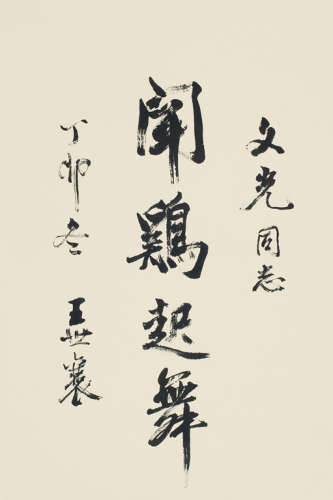 文光同志
闻鷄起舞
丁卯冬 王世襄